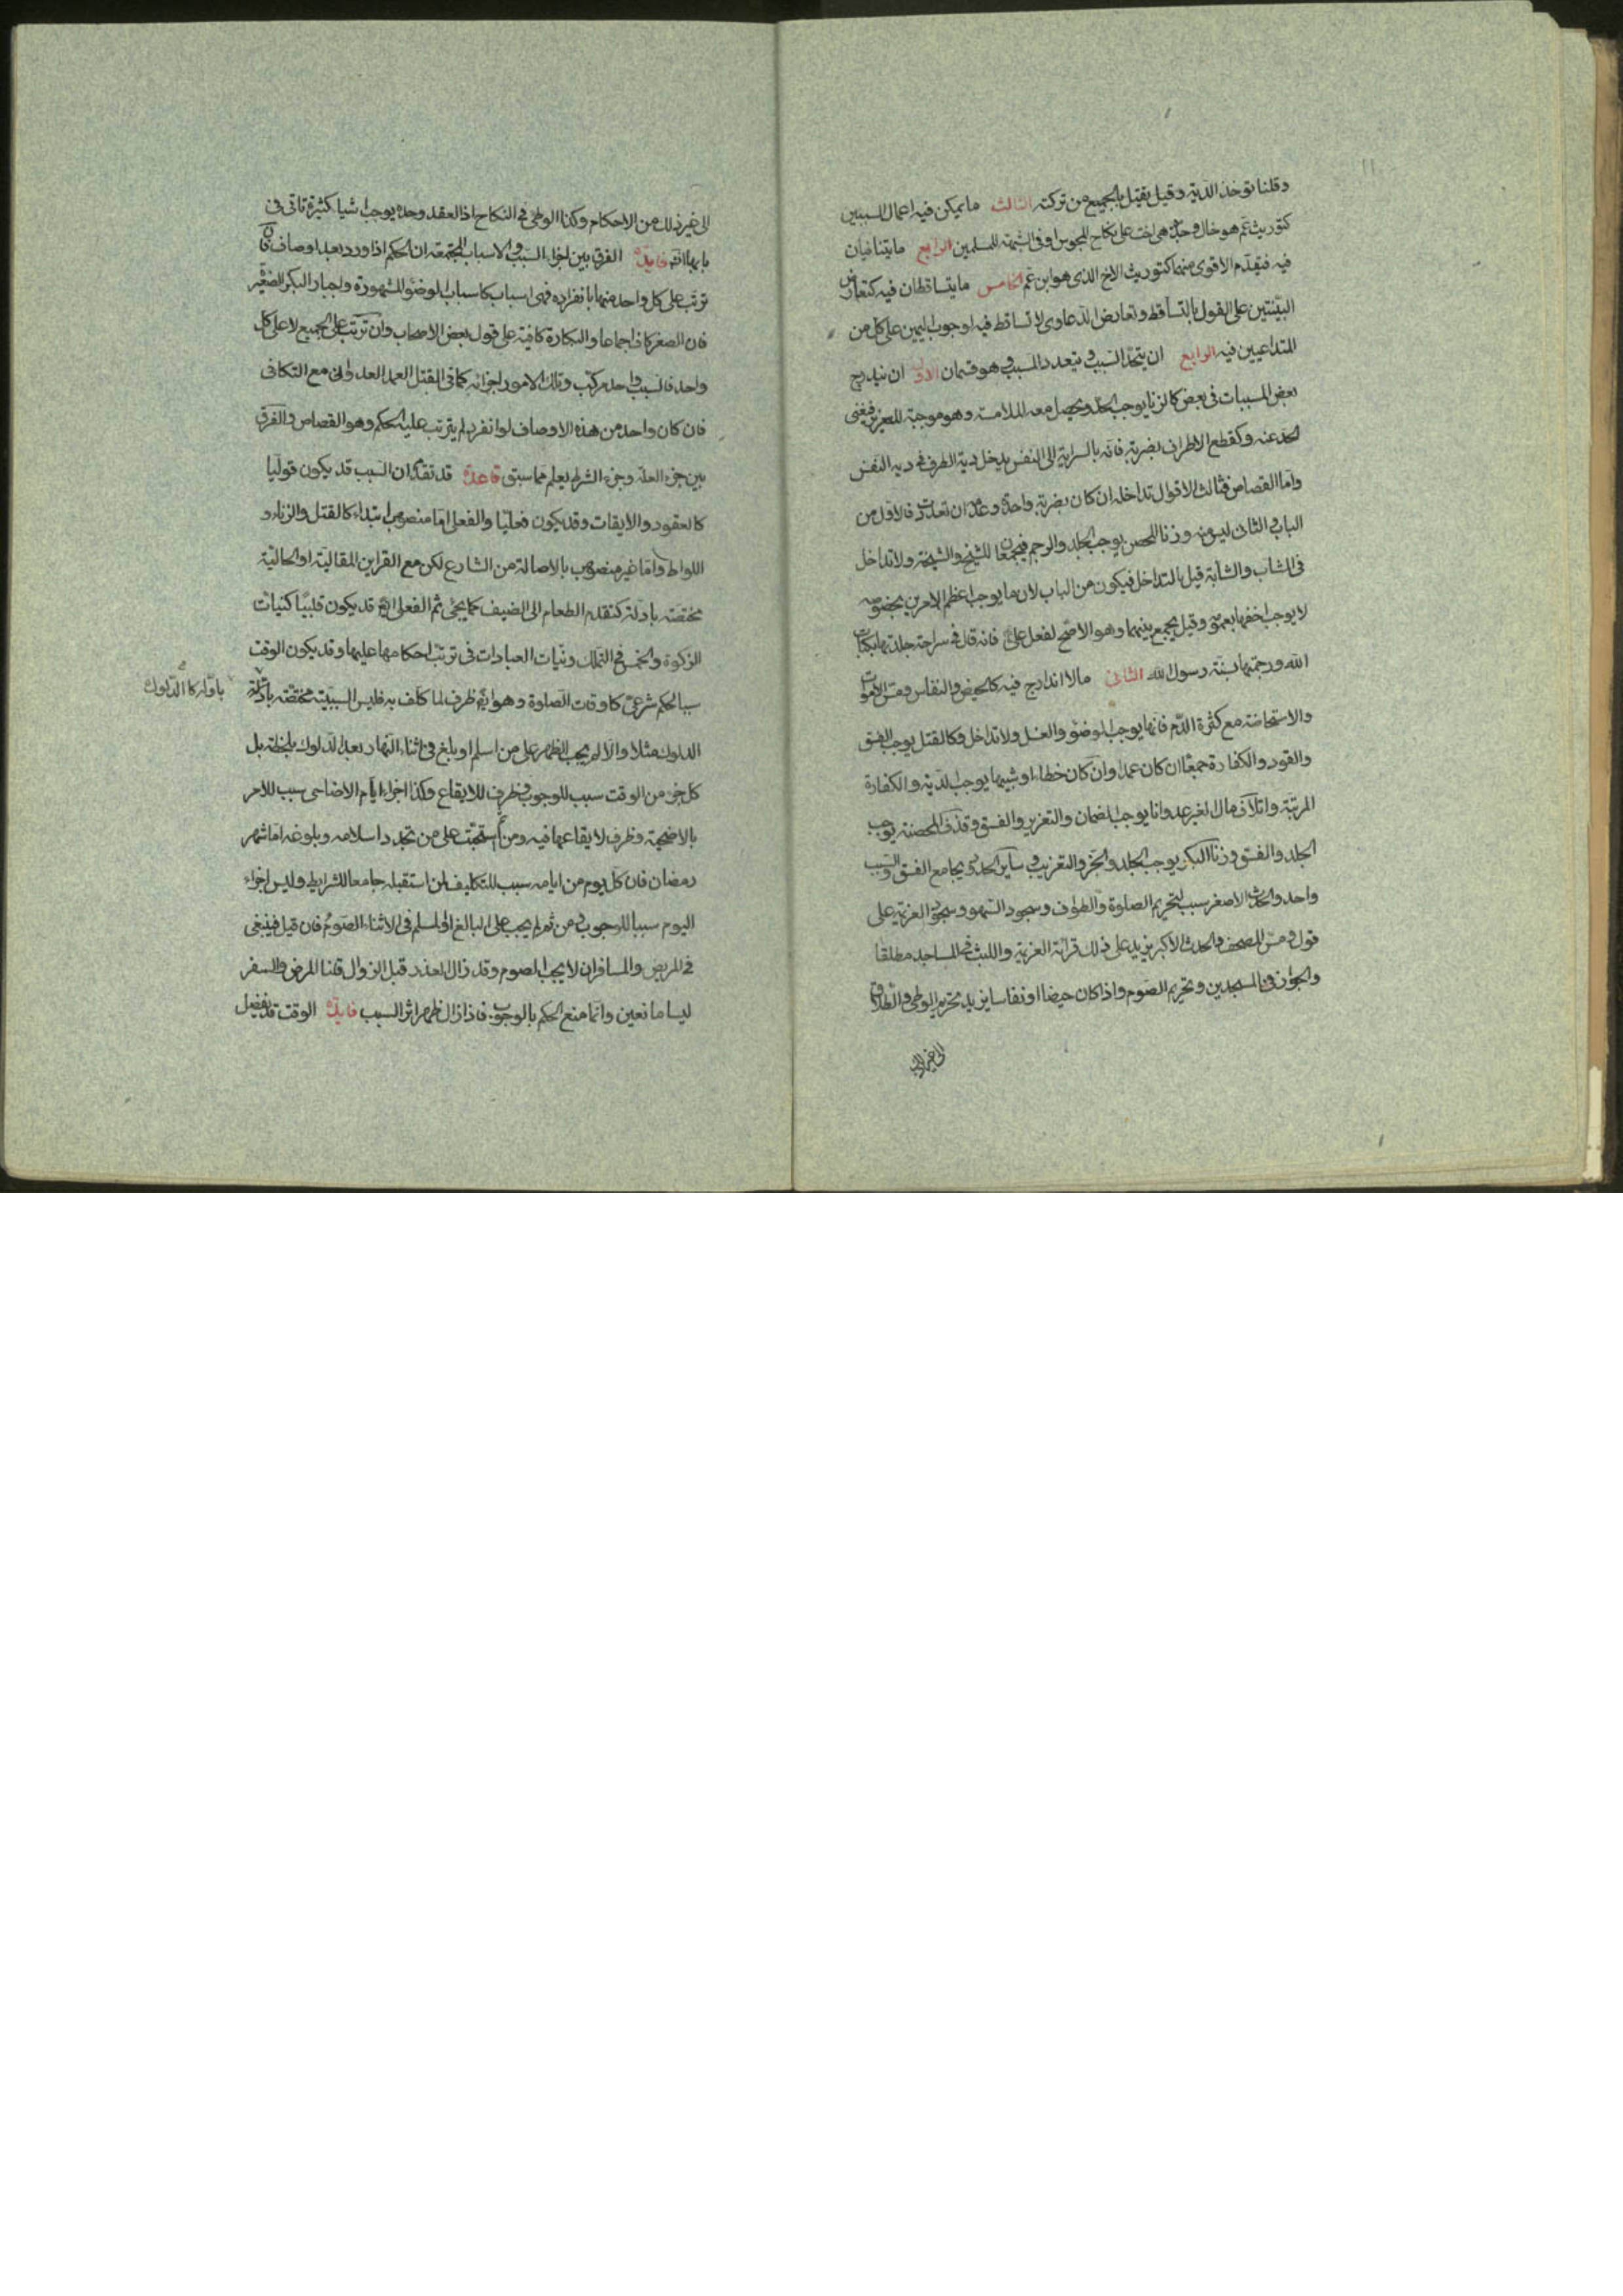 وقلنا تؤخذ الدية وقيل يقتل بالجميع من تركته الثالث ما يمكن فيه اعمال السببين
كتوريث عم هو خال وجدة هى اخت على نكاح المجوس او فى الشبهة للمسلمين الرابع ما يتنافيان
فيه فيقدم الاقوى منهما كتوريث الاخ الذى هو ابن عم الخامس ما يتساقطان فيه كتعارض
البينتين على القول بالتساقط وتعارض الدعاوى لا تساقط فيه لوجوب اليمين على كل من
المتداعيين فيه الرابع ان يتحد السبب ويتعدد المسبب وهو قسمان الاول ان يندرج
بعض المسببات فى بعض كالزنا يوجب الحد ويحصل معه الملامسة وهو موجبة للتعزير فيغنى
الحد عنه وكقطع الاطراف بضربة فانه بالسراية الى النفس يدخل دية الطرف فى دية النفس
واما القصاص فثالث الاقوال تداخله ان كان بضربة واحدة وعدمه ان تعددت فالاول من
الباب والثانى ليس منه وزنا المحصن يوجب الجلد والرجم فيجمعان للشيخ والشيخة ولا تداخل
فى الشاب والشابة قيل بالتداخل فيكون من الباب لان ما يوجب اعظم الامرين بخصوصه
لا يوجب اخفهما بعمومه وقيل يجمع بينهما وهو الاصح لفعل على ع فانه قال فى سراجة جلدتها بكتاب
الله ورجمتها بسنة رسول الله الثانى ما لا اندراج فيه كالحيض والنفاس ومس الاموات
والاستحاضة مع كثرة الدم فانها يوجب الوضوء والغسل ولا تداخل وكالقتل يوجب الفسق
والقود والكفارة جمعا ان كان عمدا وان كان خطاء او شبيها يوجب الدية والكفارة
المرتبة واتلاف مال الغير عدوانا يوجب الضمان والتعزير والفسق وقذف المحصنة يوجب
الجلد والفسق وزنا البكر يوجب الجلد والجز والتغريب وساير الحدود يجامع الفسق والسبب
واحد والحدث الاصغر سبب لتحريم الصلوة والطواف وسجود السهو وسجود العزيمة على
قول ومس المصحف والحدث الاكبر يزيد على ذلك قرائة العزيمة واللبث فى المساجد مطلقا
والجواز فى المسجدين وتحريم الصوم واذا كان حيضا او نفاسا يزيد تحريم الوطى والطلاق
الى غير ذلك
الى غير ذلك من الاحكام وكذا الوطى فى النكاح اذ العقد وحده يوجب اشيا كثيرة تاتى فى
بابها انتم فايدة الفرق بين اجزاء السبب والاسباب المجتمعة ان الحكم اذا ورد بعد اوصاف فان
ترتب على كل واحد منها بانفراده فهى اسباب كاسباب الوضوء المشهورة واجبار البكر الصغيرة
فان الصغر كاف اجماعا والبكارة كافية على قول بعض الاصحاب وان ترتب على الجميع لا على كل
واحد فالسبب واحد مركب وتلك الامور اجزائه كما فى القتل العمد العدوانى مع التكافى
فان كان واحد من هذه الاوصاف لو انفرد لم يترتب عليه الحكم وهو القصاص والفرق
بين جزء العلة وجزء الشرط يعلم مما سبق قاعدة قد تقدم ان السبب قد يكون قوليا
كالعقود والايقات وقد يكون فعليا والفعلى اما منصوب ابتداء كالقتل والزناء و
اللواط واما غير منصوب بالاصالة من الشارع لكن مع القراين المقالية او الحالية
مختصة بادلة كتقديم الطعام الى الضيف كما يجئ ثم الفعلى ايض قد يكون قلبيا كنيات
الزكوة والخمس فى التملك ونيات العبادات فى ترتب احكامها عليها وقد يكون الوقت
سببا لحكم شرعى كاوقات الصلوة وهو ايض ظرف لما كلف به فليس السببية مختصة باوله
باوله كالدلوك
الدلوك مثلا والا لم يجب الظهر على من اسلم او بلغ فى اثناء النهار بعد الدلوك بلحظة بل
كل جزء من الوقت سبب للوجوب وظرف للايقاع وكذا اجزاء ايام الاضاحى سبب للامر
بالاضحية وظرف لايقاعها فيه ومن ثم استحبت على من تجدد اسلامه وبلوغه اما شهر
رمضان فان كل يوم من ايامه سبب للتكليف لمن استقبله جامعا للشرايط وليس اجزاء
اليوم سببا للوجوب ومن ثم لم يجب على البالغ او المسلم فى الاثناء الصوم فان قيل فينبغى
فى المريض والمسافر ان لا يجب الصوم وقد زال العذر قبل الزوال قلنا المرض والسفر
ليسا مانعين وانما منع الحكم بالوجوب فاذا زال ظهر اثر السبب فايدة الوقت قد يفضل